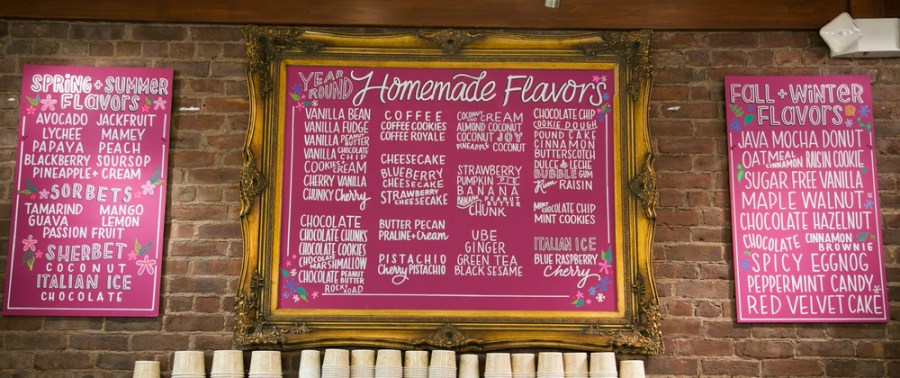 SPRING + SUMMER
FLAVORS
AVOCADO JACKFRUIT
LYCHEE MAMEY
PAPAYA PEACH
BLACKBERRY SOURSOP
PINEAPPLE + CREAM
SORBETS
TAMARIND MANGO
GUAVA LEMON
PASSION FRUIT
SHERBET
COCONUT
ITALIAN ICE
CHOCOLATE
YEAR ROUND Homemade Flavors
VANILLA BEAN
VANILLA FUDGE
VANILLA PEANUT BUTTER
VANILLA CHOCOLATE CHIP
COOKIES + CREAM
CHERRY VANILLA
CHUNKY Cherry
CHOCOLATE
CHOCOLATE CHUNKS
CHOCOLATE COOKIES
CHOCOLATE MARSHMALLOW
CHOCOLATE PEANUT BUTTER
ROCKY ROAD
COFFEE
COFFEE COOKIES
COFFEE ROYALE
CHEESECAKE
BLUEBERRY
CHEESECAKE
STRAWBERRY CHEESECAKE
BUTTER PECAN
PRALINE + Cream
PISTACHIO
Cherry PISTACHIO
COCONUT CREAM
ALMOND COCONUT
COCONUT JOY
PINEAPPLE COCONUT
STRAWBERRY
PUMPKIN PIE
BANANA
BANANA PEANUT BUTTER
CHUNK
UBE
GINGER
GREEN TEA
BLACK SESAME
CHOCOLATE CHIP
COOKIE DOUGH
POUND CAKE
CINNAMON
BUTTERSCOTCH
DULCE de LECHE
BUBBLE GUM
Rum RAISIN
MINT CHOCOLATE CHIP
MINT COOKIES
ITALIAN ICE
BLUE RASPBERRY
Cherry
FALL + WINTER
FLAVORS
JAVA MOCHA DONUT
OATMEAL CINNAMON RAISIN COOKIE
SUGAR FREE VANILLA
MAPLE WALNUT
CHOCOLATE HAZELNUT
CHOCOLATE CINNAMON BROWNIE
SPICY EGGNOG
PEPPERMINT CANDY
RED VELVET CAKE